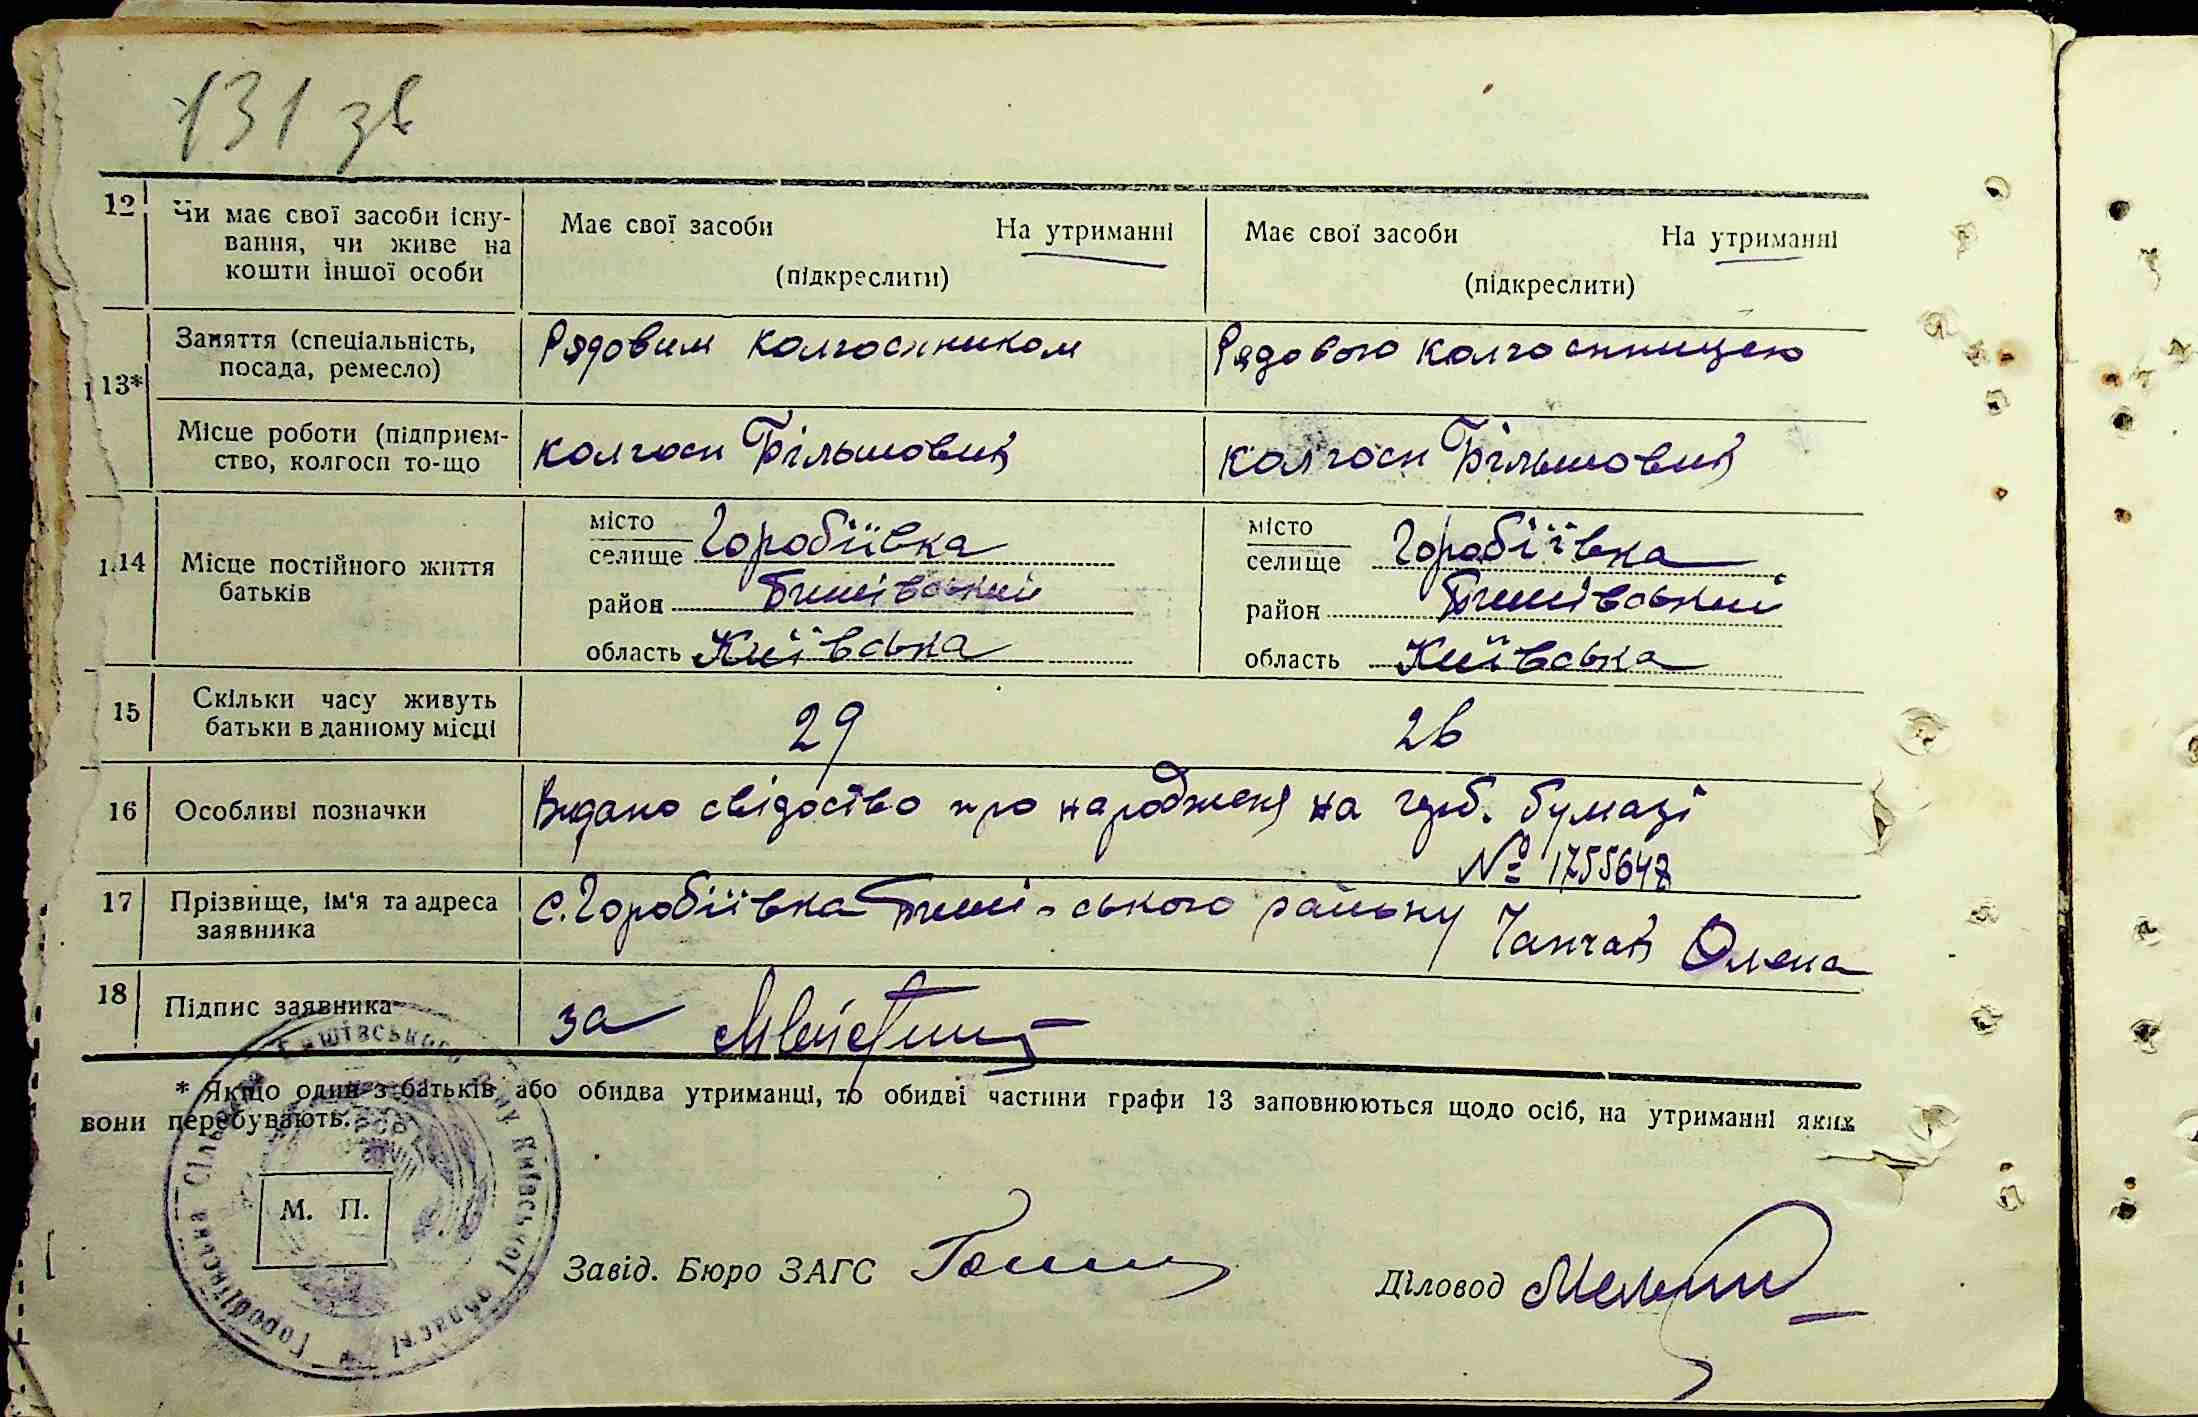 131 зв
12 Чи має свої засоби існу-
вання, чи живе на
кошти іншої особи
Має свої засоби На утриманні
(підкреслити)
Має свої засоби На утриманні
(підкреслити)
13*
Заняття (спеціальність,
посада, ремесло)
Рядовим колгоспником
Рядовою колгоспницею
Місце роботи (підприєм-
ство, колгосп то-що
колгосп Більшовик
колгосп Більшовик
14 Місце постійного життя
батьків
місто
селище Горобіївка
район Бишівський
область Київська
місто
селище Горобіївка
район Бишівський
область Київська
15 Скільки часу живуть
батьки в данному місці
29
26
16 Особливі позначки
Видано свідоство про народженя на герб. бумазі
№ 1755648
17 Прізвище, ім'я та адреса
заявника
с. Горобіївка Бишівського району Чапчай Олена
18 Підпис заявника
за
* Якщо один з батьків або обидва утриманці, то обидві частини графи 13 заповнюються щодо осіб, на утриманні яких
вони перебувають.
М. П.
Горобіївська Сільська Бишівського р-ну Київської області
Завід. Бюро ЗАГС
Діловод